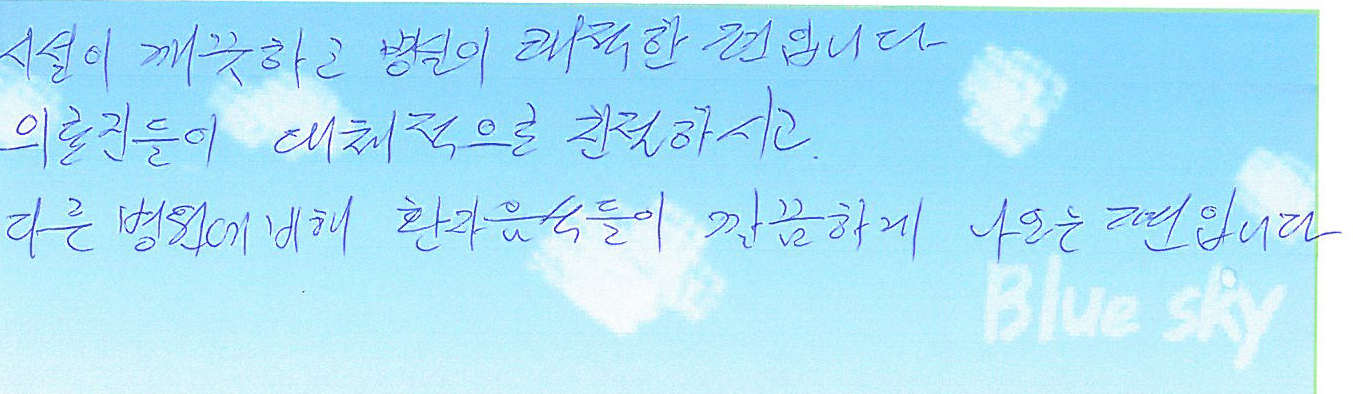 시설이 깨끗하고 병실이 쾌적한 편입니다
의료진들이 대체적으로 친절하시고.
다른 병원에 비해 환자음식들이 깔끔하게 나오는 편입니다
Blue sky